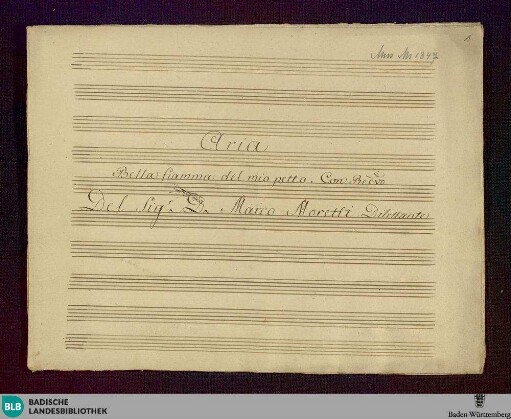 Mus. Ms. 1342
1
Aria
Bella fiamma del mio petto. Con
Del Sigr. D. Marco Moretti Dilettante
BLB BADISCHE
LANDESBIBLIOTHEK
Baden-Württemberg